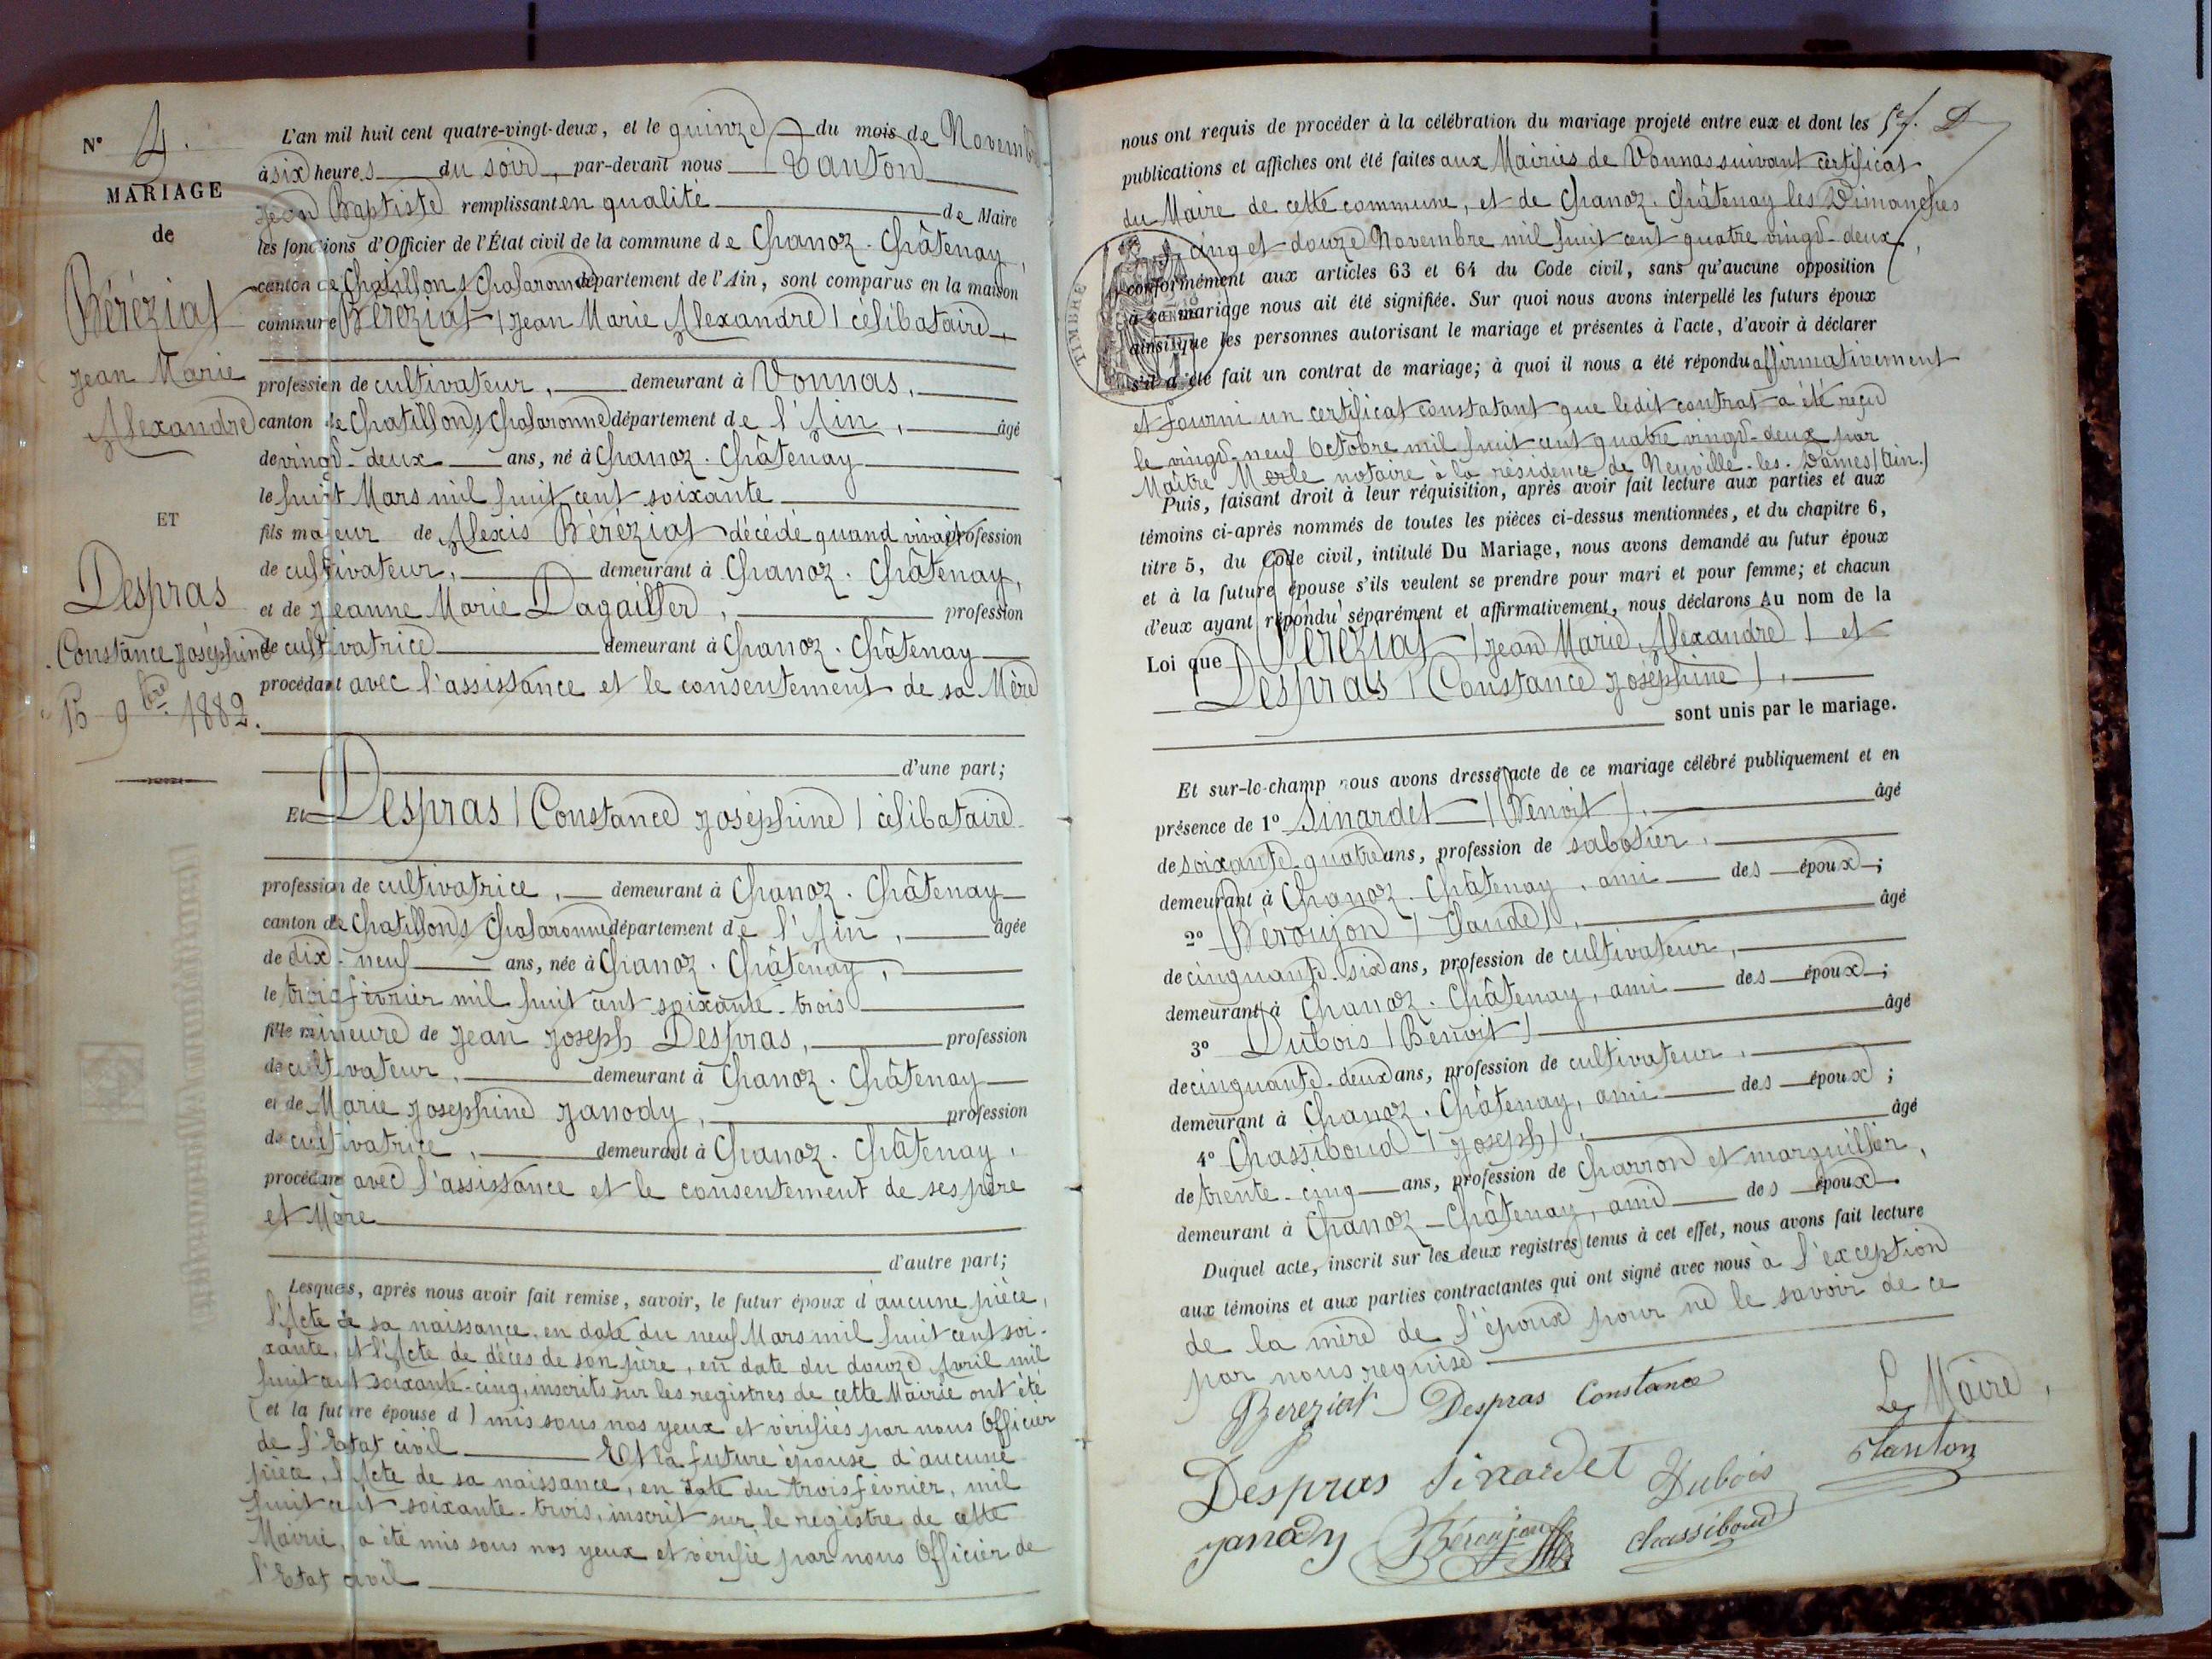 N° 4.
MARIAGE
de
Béréziat
Jean Marie
Alexandre
ET
Despras
Constance Joséphine
15 9bre 1882.
L'an mil huit cent quatre-vingt-deux, et le quinze du mois de Novembre
à six heures du soir, par-devant nous Tanton
Jean Baptiste remplissant en qualité de Maire
les fonctions d'Officier de l'État civil de la commune de Chanoz-Châtenay,
canton de Chatillon s/ Chalaronne département de l'Ain, sont comparus en la maison
commune Béréziat (Jean Marie Alexandre) célibataire
profession de cultivateur, demeurant à Vonnas,
canton de Chatillon s/ Chalaronne département de l'Ain, âgé
de vingt-deux ans, né à Chanoz-Châtenay
le huit Mars mil huit cent soixante
fils majeur de Alexis Béréziat décédé quand vivait profession
de cultivateur, demeurant à Chanoz-Châtenay,
et de Jeanne Marie Dagallier, profession
de cultivatrice demeurant à Chanoz-Châtenay
procédant avec l'assistance et le consentement de sa Mère
d'une part;
Et Despras (Constance Joséphine) célibataire
profession de cultivatrice, demeurant à Chanoz-Châtenay
canton de Chatillon s/ Chalaronne département de l'Ain, âgée
de dix-neuf ans, née à Chanoz-Châtenay,
le trois février mil huit cent soixante-trois
fille mineure de Jean Joseph Despras, profession
de cultivateur, demeurant à Chanoz-Châtenay
et de Marie Josephine Janody, profession
de cultivatrice, demeurant à Chanoz-Châtenay,
procédant avec l'assistance et le consentement de ses père
et Mère
d'autre part;
Lesquels, après nous avoir fait remise, savoir, le futur époux d'aucune pièce,
l'Acte de sa naissance, en date du neuf Mars mil huit cent soi-
xante, et l'Acte de décès de son père, en date du douze Avril mil
huit cent soixante-cinq, inscrits sur les registres de cette Mairie ont été
(et la future épouse d ) mis sous nos yeux et vérifiés par nous Officier
de l'Etat civil Et la future épouse d'aucune
pièce, l'Acte de sa naissance, en date du trois février, mil
huit cent soixante-trois, inscrit sur le registre de cette
Mairie, a été mis sous nos yeux et vérifié par nous Officier de
l'Etat civil
nous ont requis de procéder à la célébration du mariage projeté entre eux et dont les
publications et affiches ont été faites aux Mairies de Vonnas suivant certificat
du Maire de cette commune, et de Chanoz-Châtenay les Dimanches
cinq et douze Novembre mil huit cent quatre vingt-deux,
conformément aux articles 63 et 64 du Code civil, sans qu'aucune opposition
à ce mariage nous ait été signifiée. Sur quoi nous avons interpellé les futurs époux
ainsi que les personnes autorisant le mariage et présentes à l'acte, d'avoir à déclarer
s'il a été fait un contrat de mariage; à quoi il nous a été répondu affirmativement
TIMBRE
et fourni un certificat constatant que ledit contrat a été reçu
le vingt-neuf Octobre mil huit cent quatre vingt-deux par
Maître Merle notaire à la résidence de Neuville-les-Dames (Ain.)
Puis, faisant droit à leur réquisition, après avoir fait lecture aux parties et aux
témoins ci-après nommés de toutes les pièces ci-dessus mentionnées, et du chapitre 6,
titre 5, du Code civil, intitulé Du Mariage, nous avons demandé au futur époux
et à la future épouse s'ils veulent se prendre pour mari et pour femme; et chacun
d'eux ayant répondu séparément et affirmativement, nous déclarons Au nom de la
Loi que Béréziat (Jean Marie Alexandre) et
Despras (Constance Joséphine),
sont unis par le mariage.
Et sur-le-champ nous avons dressé acte de ce mariage célébré publiquement et en
présence de 1° Sinardet (Benoit), âgé
de soixante-quatre ans, profession de sabotier,
demeurant à Chanoz-Châtenay, ami des époux;
2° Béroujon (Claude), âgé
de cinquante-six ans, profession de cultivateur,
demeurant à Chanoz-Châtenay, ami des époux;
3° Dubois (Benoit) âgé
de cinquante-deux ans, profession de cultivateur,
demeurant à Chanoz-Châtenay, ami des époux;
4° Chassiboud (Joseph), âgé
de trente-cinq ans, profession de charron et marguillier,
demeurant à Chanoz-Châtenay, ami des époux.
Duquel acte, inscrit sur les deux registres tenus à cet effet, nous avons fait lecture
aux témoins et aux parties contractantes qui ont signé avec nous à l'exception
de la mère de l'époux pour ne le savoir de ce
par nous requise
Bereziat Despras Constance
Le Maire,
Despras Sinardet Dubois Tanton
Janody Béroujon Chassiboud